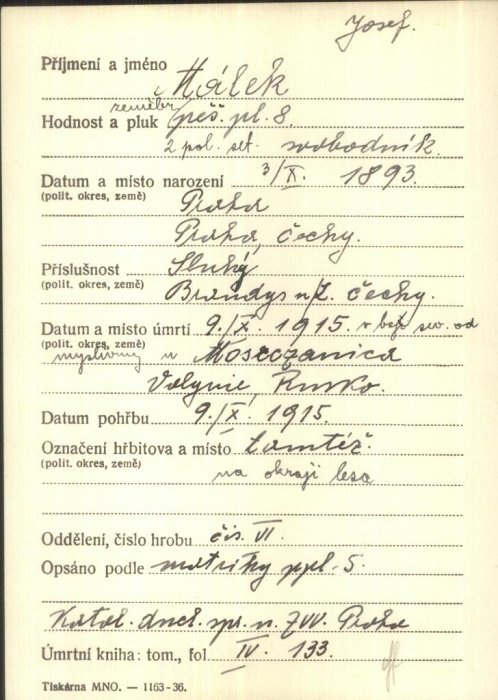 Josef.
Příjmení a jméno Málek
zeměbr.
Hodnost a pluk pěš. pl. 8.
2 pol. set. svobodník.
Datum a místo narození 3/X. 1893.
(polit. okres, země) Praha
Praha, Čechy.
Příslušnost Sluhy
(polit. okres, země)
Brandýs n/L. Čechy.
Datum a místo úmrtí 9./X. 1915. v boji sev. od
(polit. okres, země)
myslivny u Moszczanica
Volynie, Rusko.
Datum pohřbu 9./X. 1915.
Označení hřbitova a místo tamtéž.
(polit. okres, země)
na okraji lesa
Oddělení, číslo hrobu čís. VI.
Opsáno podle matriky ppl. 5.
Katol. duch. spr. n. ZVV. Praha
Úmrtní kniha: tom., fol IV. 133.
Tiskárna MNO. — 1163-36.